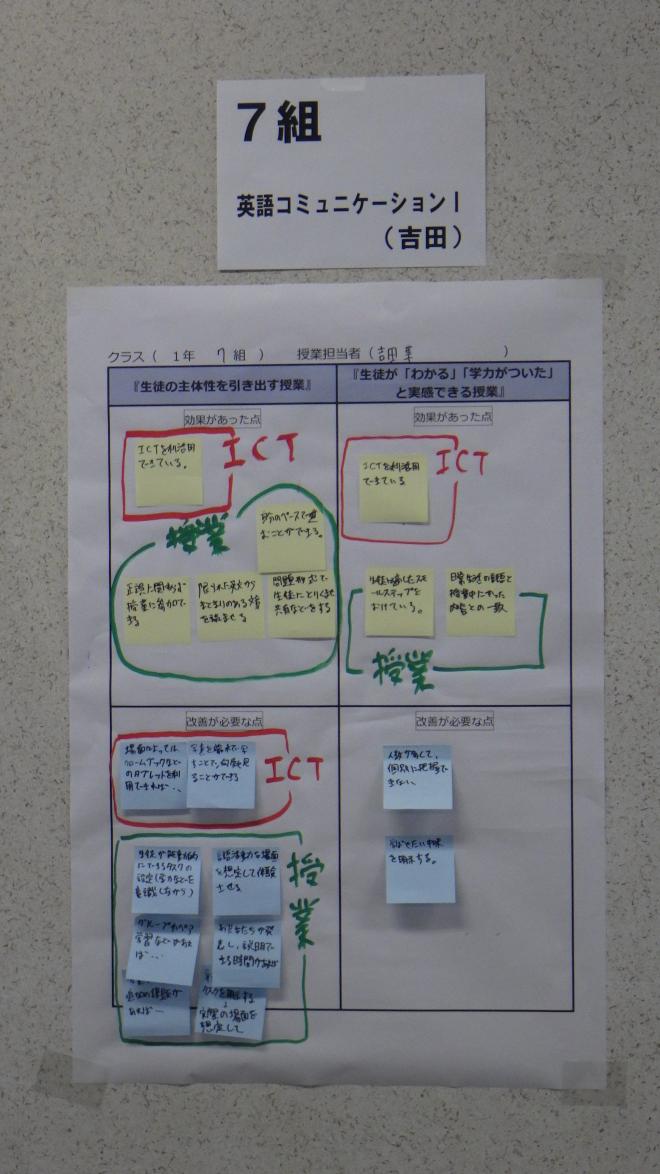 7組
英語コミュニケーションⅠ
（吉田）
クラス（ 1年 7組 ） 授業担当者（ 吉田 ）
『生徒の主体性を引き出す授業』
『生徒が「わかる」「学力がついた」
と実感できる授業』
効果があった点
ICTを利活用
できている。
ICT
授業
自分のペースで進
むことができる。
正誤に関わらず
授業に参加で
きる
限られた英文から
まとまりのある文章
を
問題形式で
生徒にとりくませ
共有などをする
効果があった点
ICTを利活用
できている
ICT
生徒に適したスモ
ールステップを
おけている。
日常生活の話題と
授業中にやった
内容との一致
授業
改善が必要な点
場面によっては
クロームブックなど
のタブレットを利
用できれば…
ことで、内容を見
ることができる
ICT
生徒が能動的
にできるタスクの
設定（学力などを
意識しながら）
言語活動な場面
を想定して体験
させる
グループやペア
学習などがあれ
ば…
発
表し、説明で
きる時間があれば
追加の課題が
あれば…
タスクを
実際の場面を
想定して
授業
改善が必要な点
人数が多くて、
個別に把握で
きない。
学ばせたい事柄
を明示する。